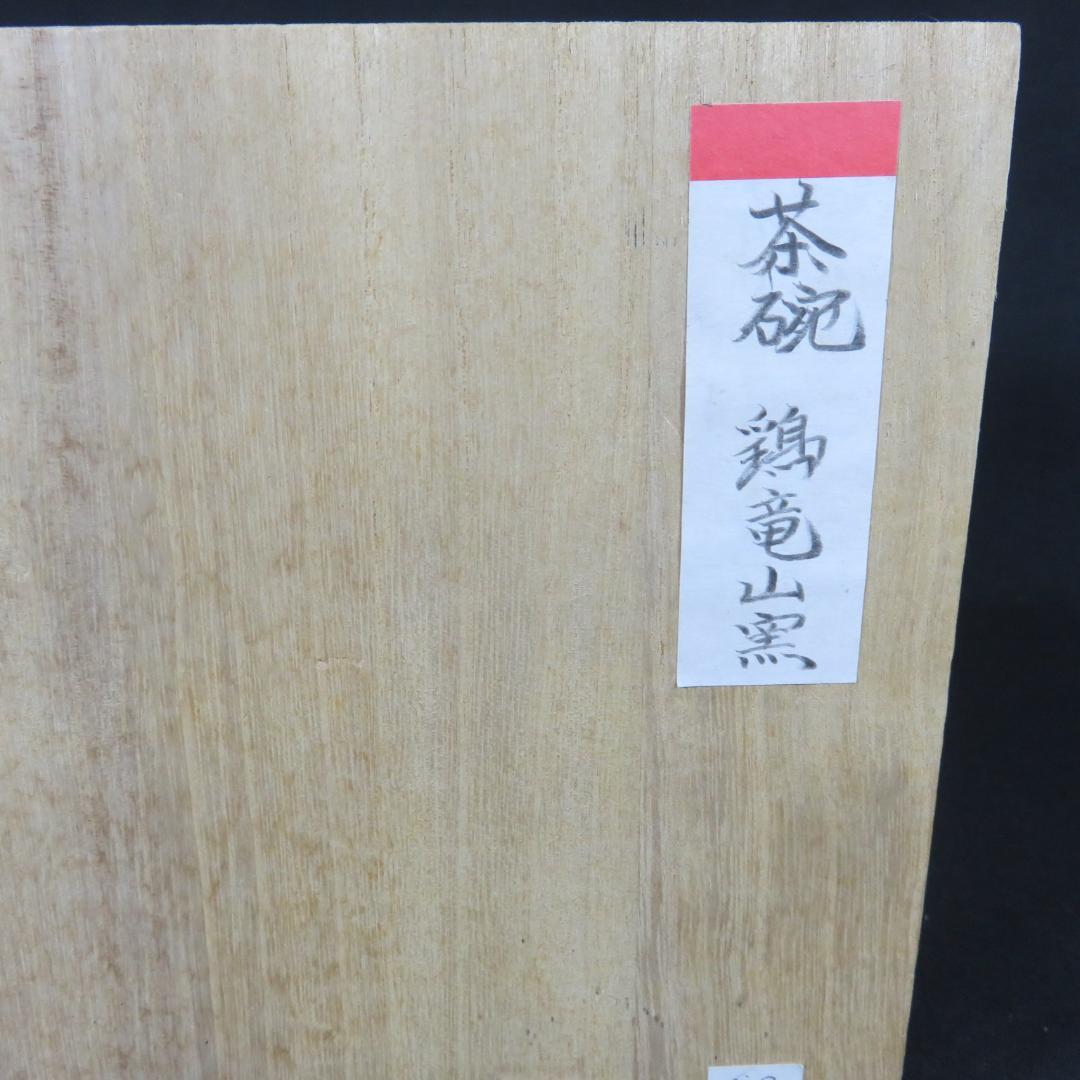 茶碗 鶏竜山窯